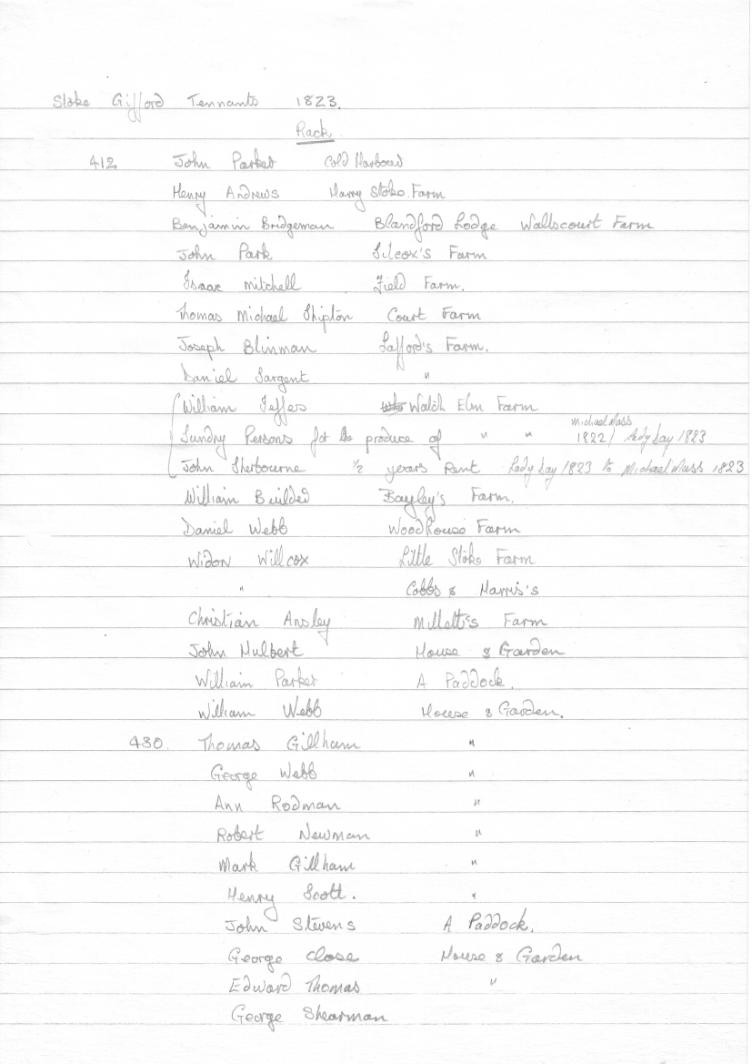 Stoke Gifford Tennants 1823.
Rack.
412 John Parker Cold Harbour
Henry Andrews Harry Stoke Farm
Benjamin Bridgeman Blandford Lodge Wallscourt Farm
John Park Silcox's Farm
Isaac Mitchell Field Farm.
Thomas Michael Shipton Court Farm
Joseph Blinman Lafford's Farm.
Daniel Sargent "
William Jeffes Watch Elm Farm
Sundry Persons for the produce of " " Michael Mass 1822/ Lady Day 1823
John Sherbourne 1/2 years Rent Lady Day 1823 to Michael Mass 1823
William Builded Bayley's Farm.
Daniel Webb Woodhouse Farm
Widow Willcox Little Stoke Farm
" Cobbs & Harris's
Christian Ansley Millett's Farm
John Hulbert House & Garden
William Parker A Paddock.
William Webb House & Garden.
430. Thomas Gillham "
George Webb "
Ann Rodman "
Robert Newman "
Mark Gillham "
Henry Scott. "
John Stevens A Paddock.
George Close House & Garden
Edward Thomas "
George Shearman